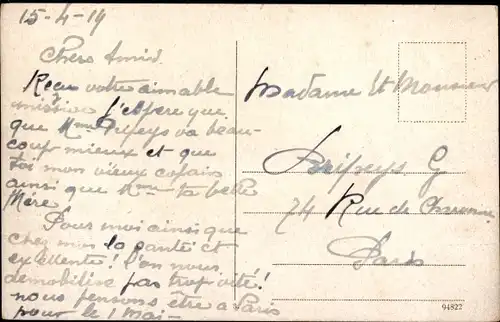 15-4-19
Chers Amis
Reçu votre aimable
missive J'espère que
que Mme va beau-
coup mieux et que
toi mon vieux copain
ainsi que Mme ta belle
Mère.
Pour moi ainsi que
chez moi la santé est
excellente! L'on nous
démobilise pas trop vite!
nous pensons être a Paris
pour le 1 Mai-
Madame Et Monsieur
G
74 Rue de Charonne
Paris
94822